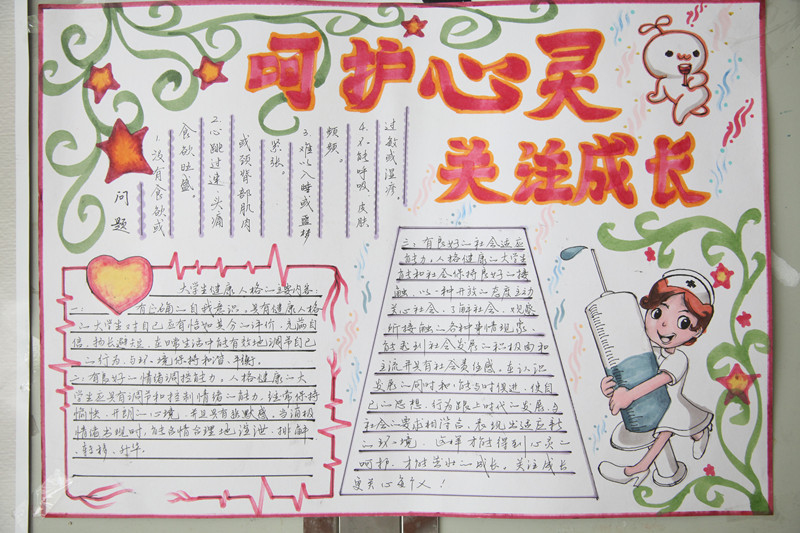 呵护心灵
关注成长
问题
1.没有食欲或
食欲旺盛
2.心跳过速 头痛
或颈背部肌肉
紧张。
3.难以入睡或噩梦
频频。
4.不能呼吸 皮肤
过敏或湿疹
大学生健康人格的主要内容:
一: 有正确的自我意识,具有健康人格
的大学生对自己会有恰如其分的评价,充满自
信,扬长避短,在日常生活中能有效地调节自己
的行为,与环境保持和谐、平衡。
二:有良好的情绪调控能力。人格健康的大
学生应具有调节和控制情绪的能力,经常保持
愉快、开朗的心境,并且具有幽默感。当消极
情绪出现时,能合情合理地渲泄、排解、
转移、升华。
三:有良好的社会适应
能力,人格健康的大学生
能和社会保持良好的接
触,以一种开放的态度主动
关心社会、了解社会、观察
所接触的各种事情现象
能看到社会发展的积极面和
主流并具有社会责任感,在认识
发展的同时和能与时俱进、使自
己的思想、行为跟上时代的发展,与
社会的要求相符合,表现出适应新
的环境。这样才能得到心灵的
呵护,才能茁壮的成长。关注成长
要关心每个人!